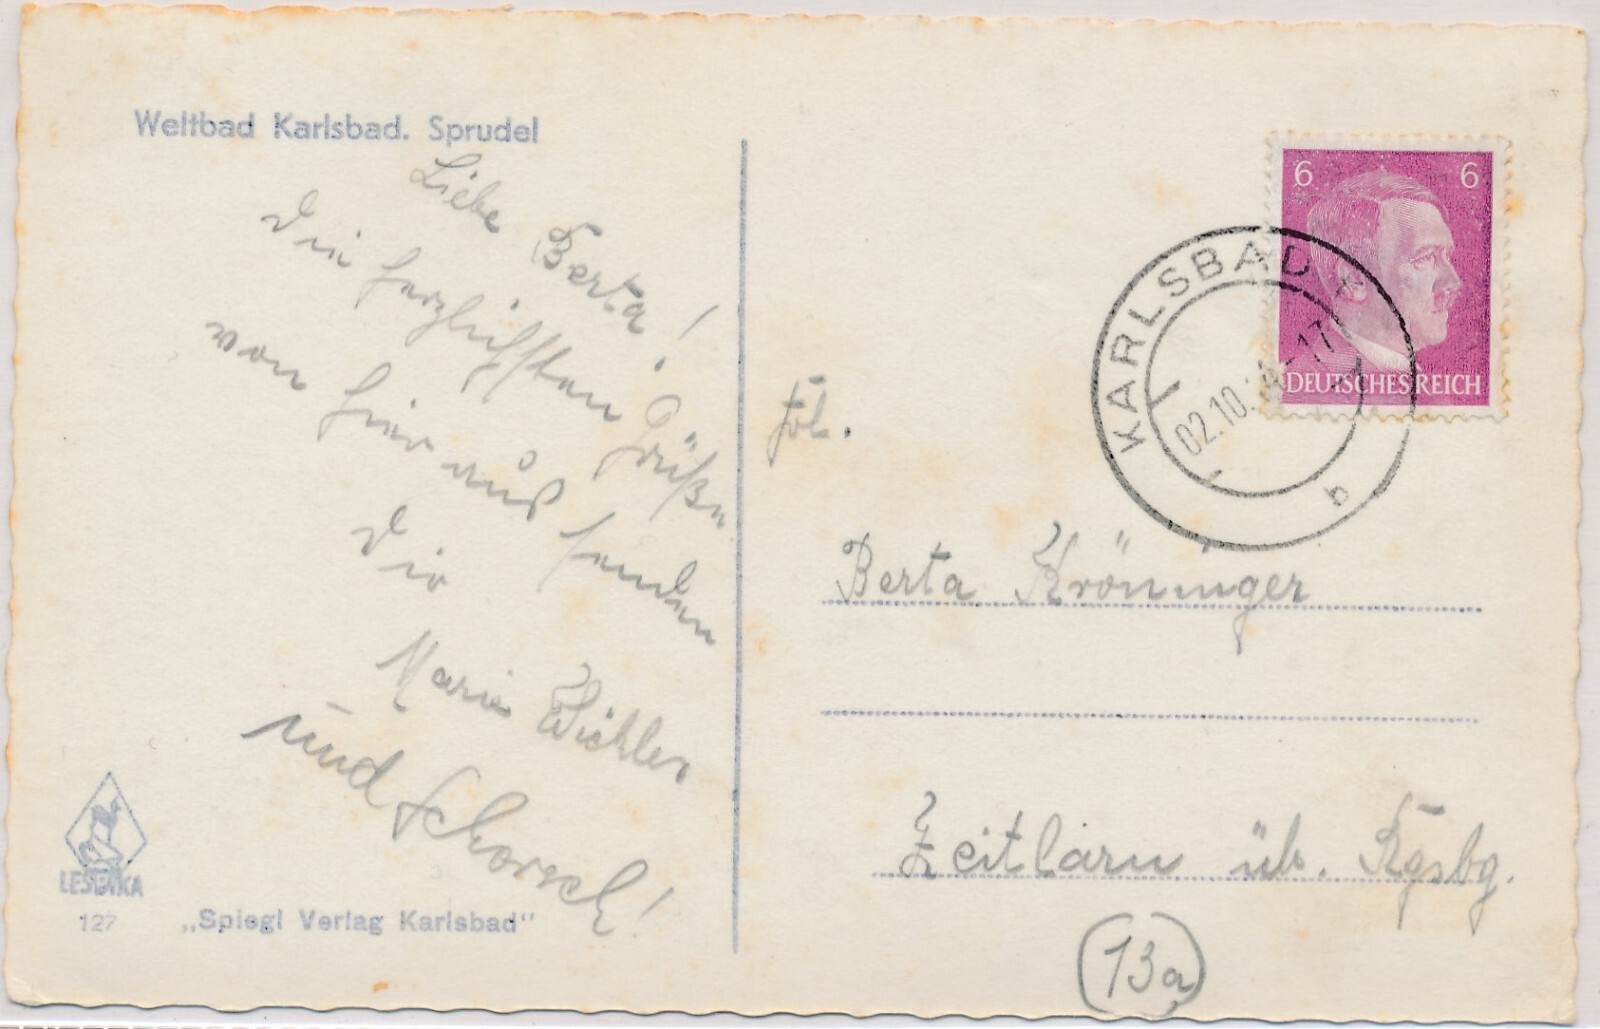 Weltbad Karlsbad. Sprudel
Liebe Berta!
Die herzlichsten Grüße
von hier aus senden
Dir
Marie Wichler
und Schorsch!
LESETKA
127
„Spiegl Verlag Karlsbad"
6 6
DEUTSCHES REICH
KARLSBAD 1
02.10. -17
b
Frl.
Berta Kröninger
Zeitlarn üb. Rgsbg.
13a